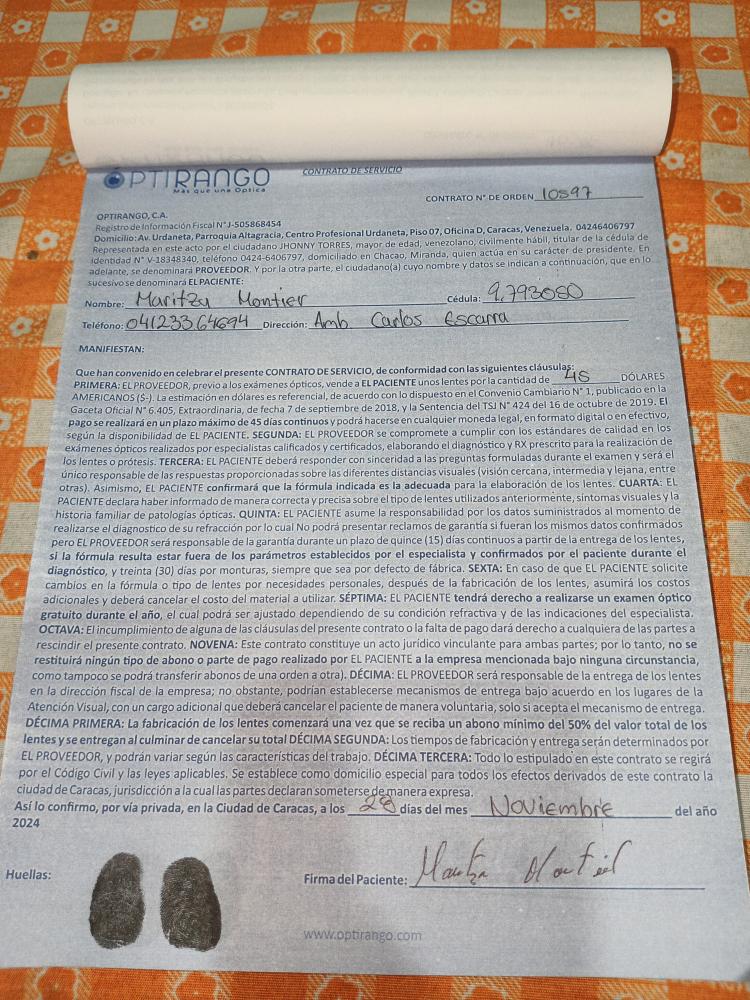 OPTIRANGO
Más que una Óptica
CONTRATO DE SERVICIO
CONTRATO N° DE ORDEN 10597
OPTIRANGO, C.A.
Registro de Información Fiscal N°J-505868454
Domicilio: Av. Urdaneta, Parroquia Altagracia, Centro Profesional Urdaneta, Piso 07, Oficina D, Caracas, Venezuela. 04246406797
Representada en este acto por el ciudadano JHONNY TORRES, mayor de edad, venezolano, civilmente hábil, titular de la cédula de
Identidad N° V-18348340, teléfono 0424-6406797, domiciliado en Chacao, Miranda, quien actúa en su carácter de presidente. En
adelante, se denominará PROVEEDOR. Y por la otra parte, el ciudadano(a) cuyo nombre y datos se indican a continuación, que en lo
sucesivo se denominará EL PACIENTE:
Nombre: Maritza Montier Cédula: 9.793080
Teléfono: 04123364694 Dirección: Amb. Carlos Escarra
MANIFIESTAN:
Que han convenido en celebrar el presente CONTRATO DE SERVICIO, de conformidad con las siguientes cláusulas:
PRIMERA: EL PROVEEDOR, previo a los exámenes ópticos, vende a EL PACIENTE unos lentes por la cantidad de 45 DÓLARES
AMERICANOS ($-). La estimación en dólares es referencial, de acuerdo con lo dispuesto en el Convenio Cambiario N° 1, publicado en la
Gaceta Oficial N° 6.405, Extraordinaria, de fecha 7 de septiembre de 2018, y la Sentencia del TSJ N° 424 del 16 de octubre de 2019. El
pago se realizará en un plazo máximo de 45 días continuos y podrá hacerse en cualquier moneda legal, en formato digital o en efectivo,
según la disponibilidad de EL PACIENTE. SEGUNDA: EL PROVEEDOR se compromete a cumplir con los estándares de calidad en los
exámenes ópticos realizados por especialistas calificados y certificados, elaborando el diagnóstico y RX prescrito para la realización de
los lentes o prótesis. TERCERA: EL PACIENTE deberá responder con sinceridad a las preguntas formuladas durante el examen y será el
único responsable de las respuestas proporcionadas sobre las diferentes distancias visuales (visión cercana, intermedia y lejana, entre
otras). Asimismo, EL PACIENTE confirmará que la fórmula indicada es la adecuada para la elaboración de los lentes. CUARTA: EL
PACIENTE declara haber informado de manera correcta y precisa sobre el tipo de lentes utilizados anteriormente, síntomas visuales y la
historia familiar de patologías ópticas. QUINTA: EL PACIENTE asume la responsabilidad por los datos suministrados al momento de
realizarse el diagnostico de su refracción por lo cual No podrá presentar reclamos de garantía si fueran los mismos datos confirmados
pero EL PROVEEDOR será responsable de la garantía durante un plazo de quince (15) días continuos a partir de la entrega de los lentes,
si la fórmula resulta estar fuera de los parámetros establecidos por el especialista y confirmados por el paciente durante el
diagnóstico, y treinta (30) días por monturas, siempre que sea por defecto de fábrica. SEXTA: En caso de que EL PACIENTE solicite
cambios en la fórmula o tipo de lentes por necesidades personales, después de la fabricación de los lentes, asumirá los costos
adicionales y deberá cancelar el costo del material a utilizar. SÉPTIMA: EL PACIENTE tendrá derecho a realizarse un examen óptico
gratuito durante el año, el cual podrá ser ajustado dependiendo de su condición refractiva y de las indicaciones del especialista.
OCTAVA: El incumplimiento de alguna de las cláusulas del presente contrato o la falta de pago dará derecho a cualquiera de las partes a
rescindir el presente contrato. NOVENA: Este contrato constituye un acto jurídico vinculante para ambas partes; por lo tanto, no se
restituirá ningún tipo de abono o parte de pago realizado por EL PACIENTE a la empresa mencionada bajo ninguna circunstancia,
como tampoco se podrá transferir abonos de una orden a otra). DÉCIMA: EL PROVEEDOR será responsable de la entrega de los lentes
en la dirección fiscal de la empresa; no obstante, podrían establecerse mecanismos de entrega bajo acuerdo en los lugares de la
Atención Visual, con un cargo adicional que deberá cancelar el paciente de manera voluntaria, solo si acepta el mecanismo de entrega.
DÉCIMA PRIMERA: La fabricación de los lentes comenzará una vez que se reciba un abono mínimo del 50% del valor total de los
lentes y se entregan al culminar de cancelar su total DÉCIMA SEGUNDA: Los tiempos de fabricación y entrega serán determinados por
EL PROVEEDOR, y podrán variar según las características del trabajo. DÉCIMA TERCERA: Todo lo estipulado en este contrato se regirá
por el Código Civil y las leyes aplicables. Se establece como domicilio especial para todos los efectos derivados de este contrato la
ciudad de Caracas, jurisdicción a la cual las partes declaran someterse de manera expresa.
Así lo confirmo, por vía privada, en la Ciudad de Caracas, a los 28 días del mes Noviembre del año
2024
Huellas:
Firma del Paciente: Maritza Montiel
www.optirango.com